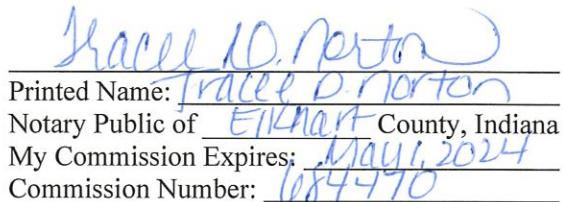 Tracee D. Norton
Printed Name: Tracee D. Norton
Notary Public of Elkhart County, Indiana
My Commission Expires: May 1, 2024
Commission Number: 684470